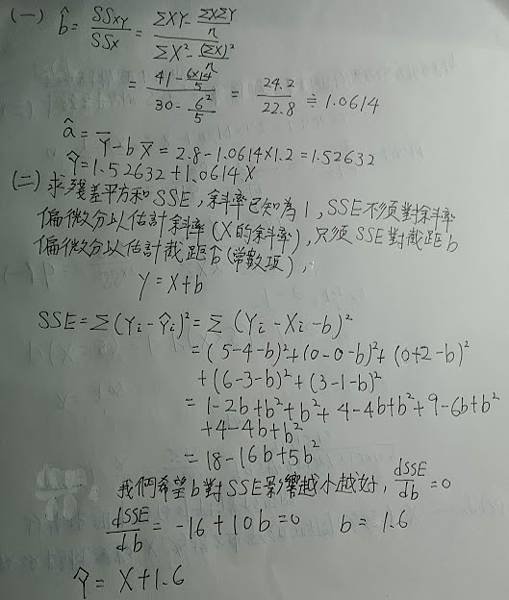 (一) b̂ = SSxy/SSx = (ΣXY - ΣXΣY/n)/(ΣX² - (ΣX)²/n)
= (41 - 6×14/5)/(30 - 6²/5) = 24.2/22.8 ≑ 1.0614
â = Ȳ - bX̄ = 2.8 - 1.0614×1.2 = 1.52632
Ŷ = 1.52632 + 1.0614X
(二) 求殘差平方和SSE, 斜率已知為1, SSE不須對斜率
偏微分以估計斜率(X的斜率), 只須SSE對截距b
偏微分以估計截距b(常數項),
Y = X+b
SSE = Σ(Yi - Ŷi)² = Σ (Yi - Xi - b)²
= (5-4-b)²+(0-0-b)²+(0+2-b)²
+(6-3-b)²+(3-1-b)²
= 1-2b+b²+b²+4-4b+b²+9-6b+b²
+4-4b+b²
= 18-16b+5b²
我們希望b對SSE影響越小越好, dSSE/db = 0
dSSE/db = -16+10b=0 b = 1.6
Ŷ = X+1.6